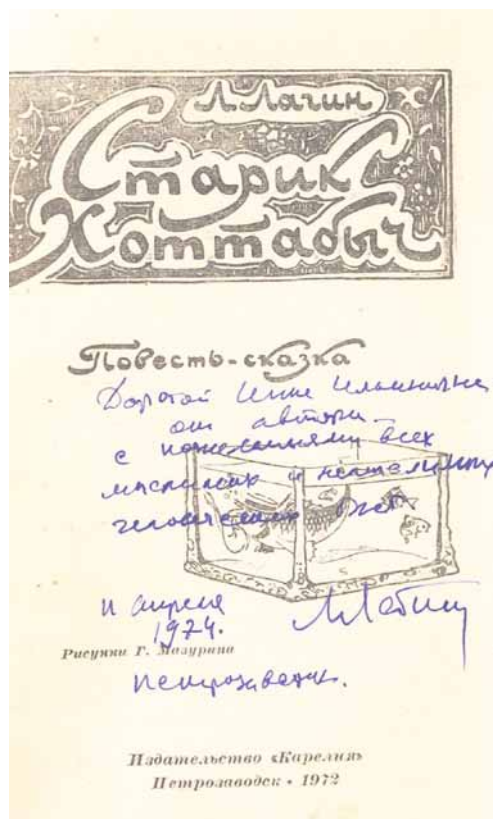 Л. Лагин
Старик
Хоттабыч
Повесть-сказка
Дорогой Инне Ильиничне
от автора
с пожеланиями всех
мыслимых и немыслимых
человеческих благ
11 апреля
1974.
ЛЛагин
Рисунки Г. Мазурина
Петрозаводск.
Издательство «Карелия»
Петрозаводск • 1972